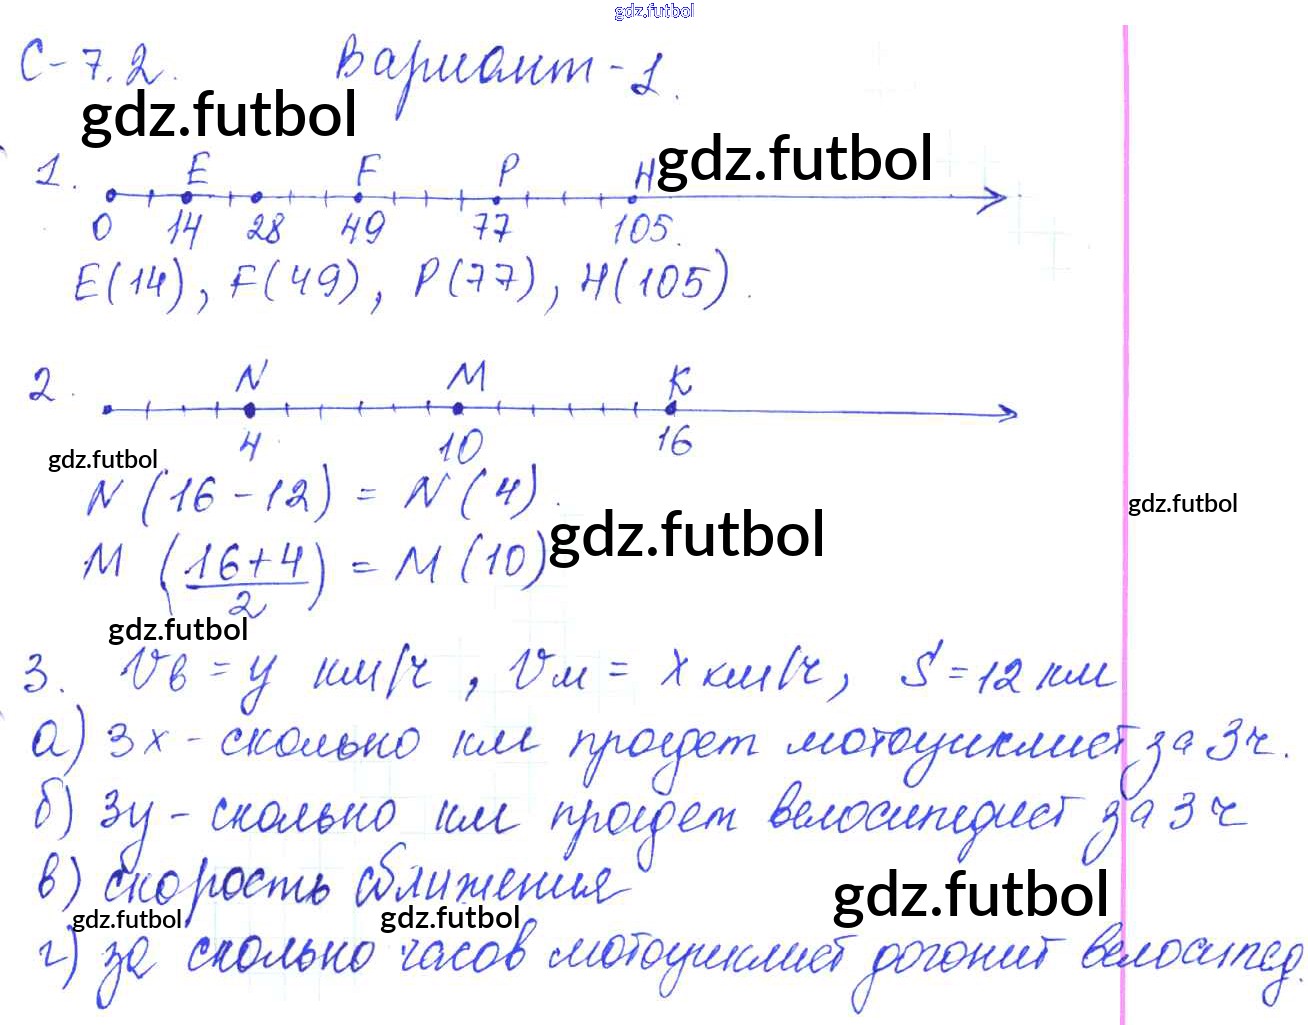 gdz.futbol
С-7.2. Вариант-1.
gdz.futbol
gdz.futbol
1. E F P H
0 14 28 49 77 105.
E(14), F(49), P(77), H(105).
2. N M K
4 10 16
gdz.futbol
N (16-12) = N(4).
gdz.futbol
gdz.futbol
M ((16+4)/2) = M(10)
gdz.futbol
3. Vв = y км/ч, Vм = x км/ч, S = 12 км
а) 3x - сколько км проедет мотоциклист за 3ч.
б) 3y - сколько км проедет велосипедист за 3ч
в) скорость сближения
gdz.futbol
gdz.futbol
gdz.futbol
г) за сколько часов мотоциклист догонит велосипед.